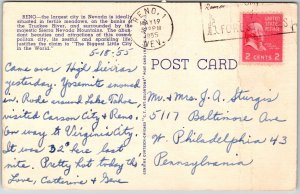 RENO—the largest city in Nevada is ideally
situated in fertile meadows, on the banks of
the Truckee River, and surrounded by the
majestic Sierra Nevada Mountains. The abun-
dant beauties and attractions of this cosmo-
politan city, its useful and sparkling life,
justifies the claim to "The Biggest Little City
in the World."
5-18-55
Came over High Sierras
yesterday. Yosemite snowed
in. Rode around Lake Tahoe,
visited Carson City & Reno.
On way to Virginia City.
It was 32° here last
nite. Pretty hot today tho
Love, Catherine & Gene
RENO,
MAY 18
PM
1955
NEV.
POST CARD
2 CENTS 2
Mr. & Mrs. J. A. Sturgis
5117 Baltimore Ave
W. Philadelphia 43
Pennsylvania